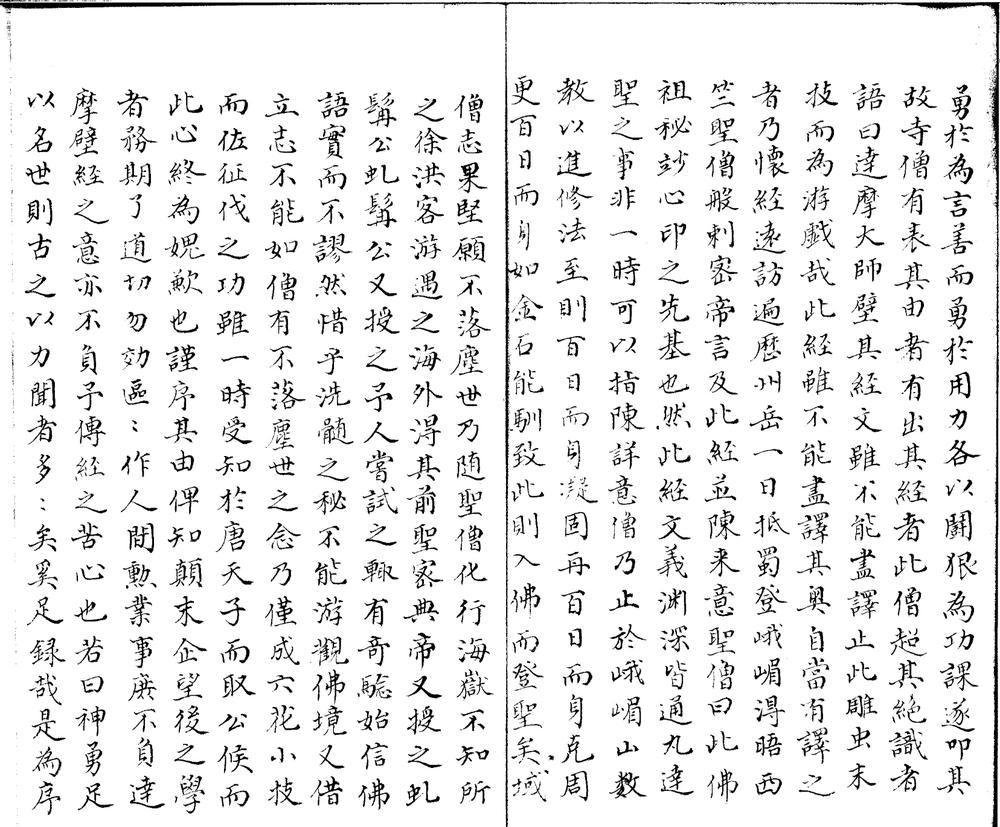 勇於為言善而勇於用力各以鬪狠為功課遂叩其
故寺僧有表其由者有出其経者此僧超其絶識者
語曰達摩大師壁其経文雖不能盡譯止此雕虫末
技而為游戱哉此経雖不能盡譯其奧自當有譯之
者乃懷経遠訪遍歷州岳一日抵蜀登峨嵋淂晤西
竺聖僧般剌密帝言及此経並陳来意聖僧曰此佛
祖秘玅心印之先基也然此経文義渊深皆通九達
聖之事非一時可以指陳詳意僧乃止於峨嵋山數
教以進修法至則百日而身凝固再百日而身克周
更百日而身如金石能馴致此則入佛而登聖矣域
僧志果堅願不落塵世乃随聖僧化行海嶽不知所
之徐洪客游遇之海外淂其前聖家典帝又授之虬
髯公虬髯公又授之予人嘗試之輙有奇騐始信佛
語實而不謬然惜乎洗髓之秘不能游觀佛境又借
立志不能如僧有不落塵世之念乃僅成六花小技
而佐征伐之功雖一時受知於唐天子而取公侯而
此心終為媿歉也謹序其由俾知顛末企望後之學
者務期了道切勿効區〻作人間勲業事庶不負達
摩壁経之意亦不負予傳経之苦心也若曰神勇足
以名世則古之以力聞者多〻矣奚足録哉是為序